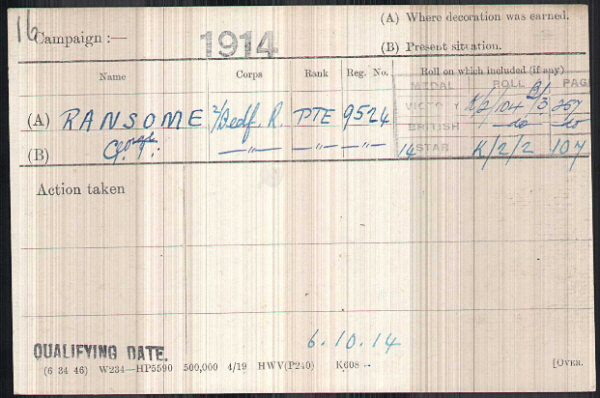 16
(A) Where decoration was earned.
Campaign :— 1914
(B) Present situation.
Name Corps Rank Reg. No. Roll on which included (if any)
MEDAL ROLL PAGE
(A) RANSOME 2/Bedf. R. PTE 9524 VICTORY 257
(B) George. —〃— —〃— —〃— BRITISH do do
14 STAR K/2/2 107
Action taken
QUALIFYING DATE. 6.10.14
(6 34 46) W234—HP5590 500,000 4/19 HWV(P240) K608 [OVER.